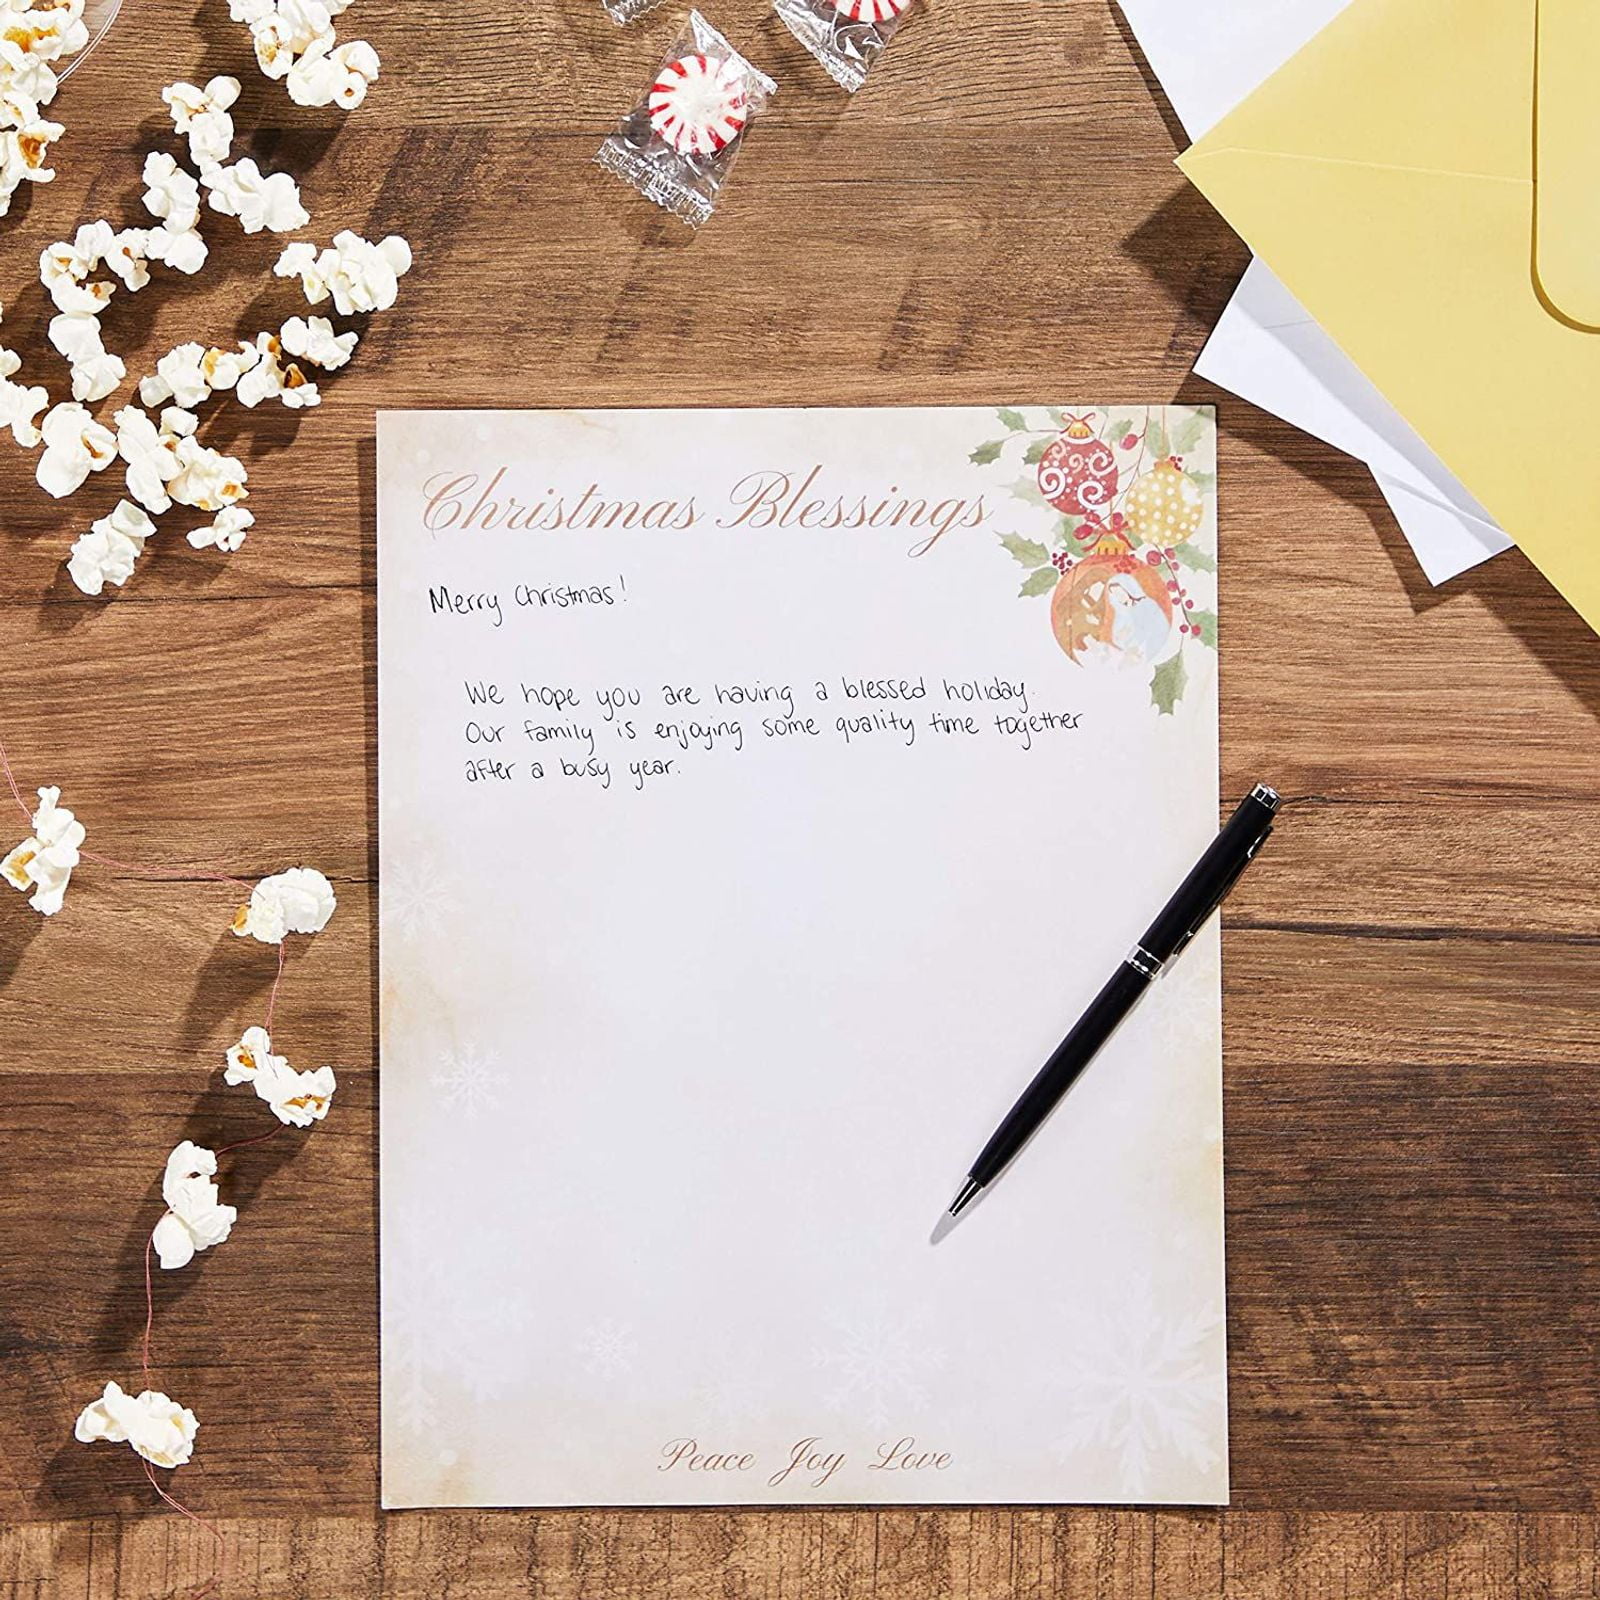 Christmas Blessings
Merry Christmas!
We hope you are having a blessed holiday.
Our family is enjoying some quality time together
after a busy year.
Peace Joy Love